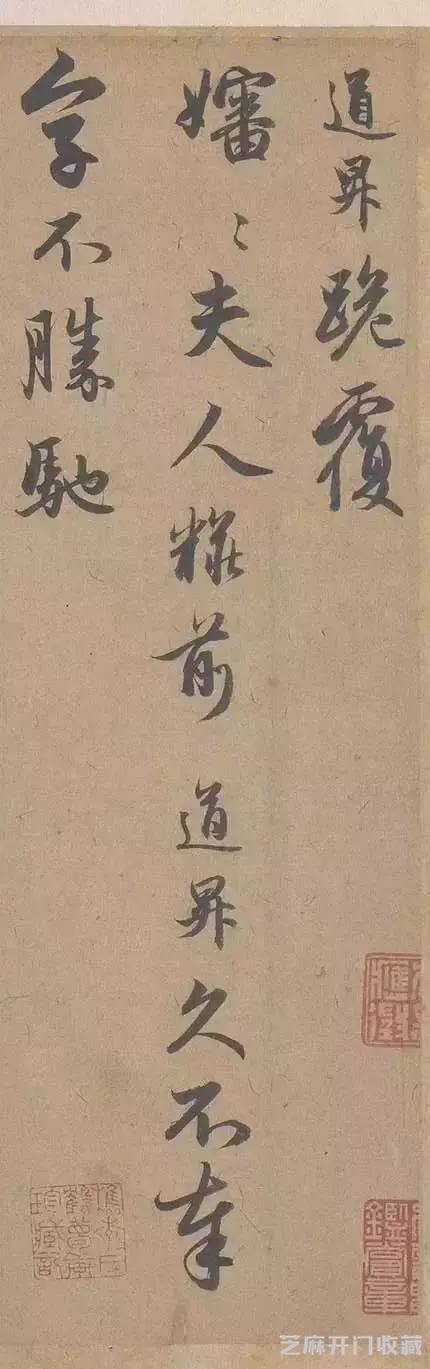 道昇跪覆
嬸〻夫人粧前道昇久不奉
字不勝馳
鑑賞章
芝麻开门收藏